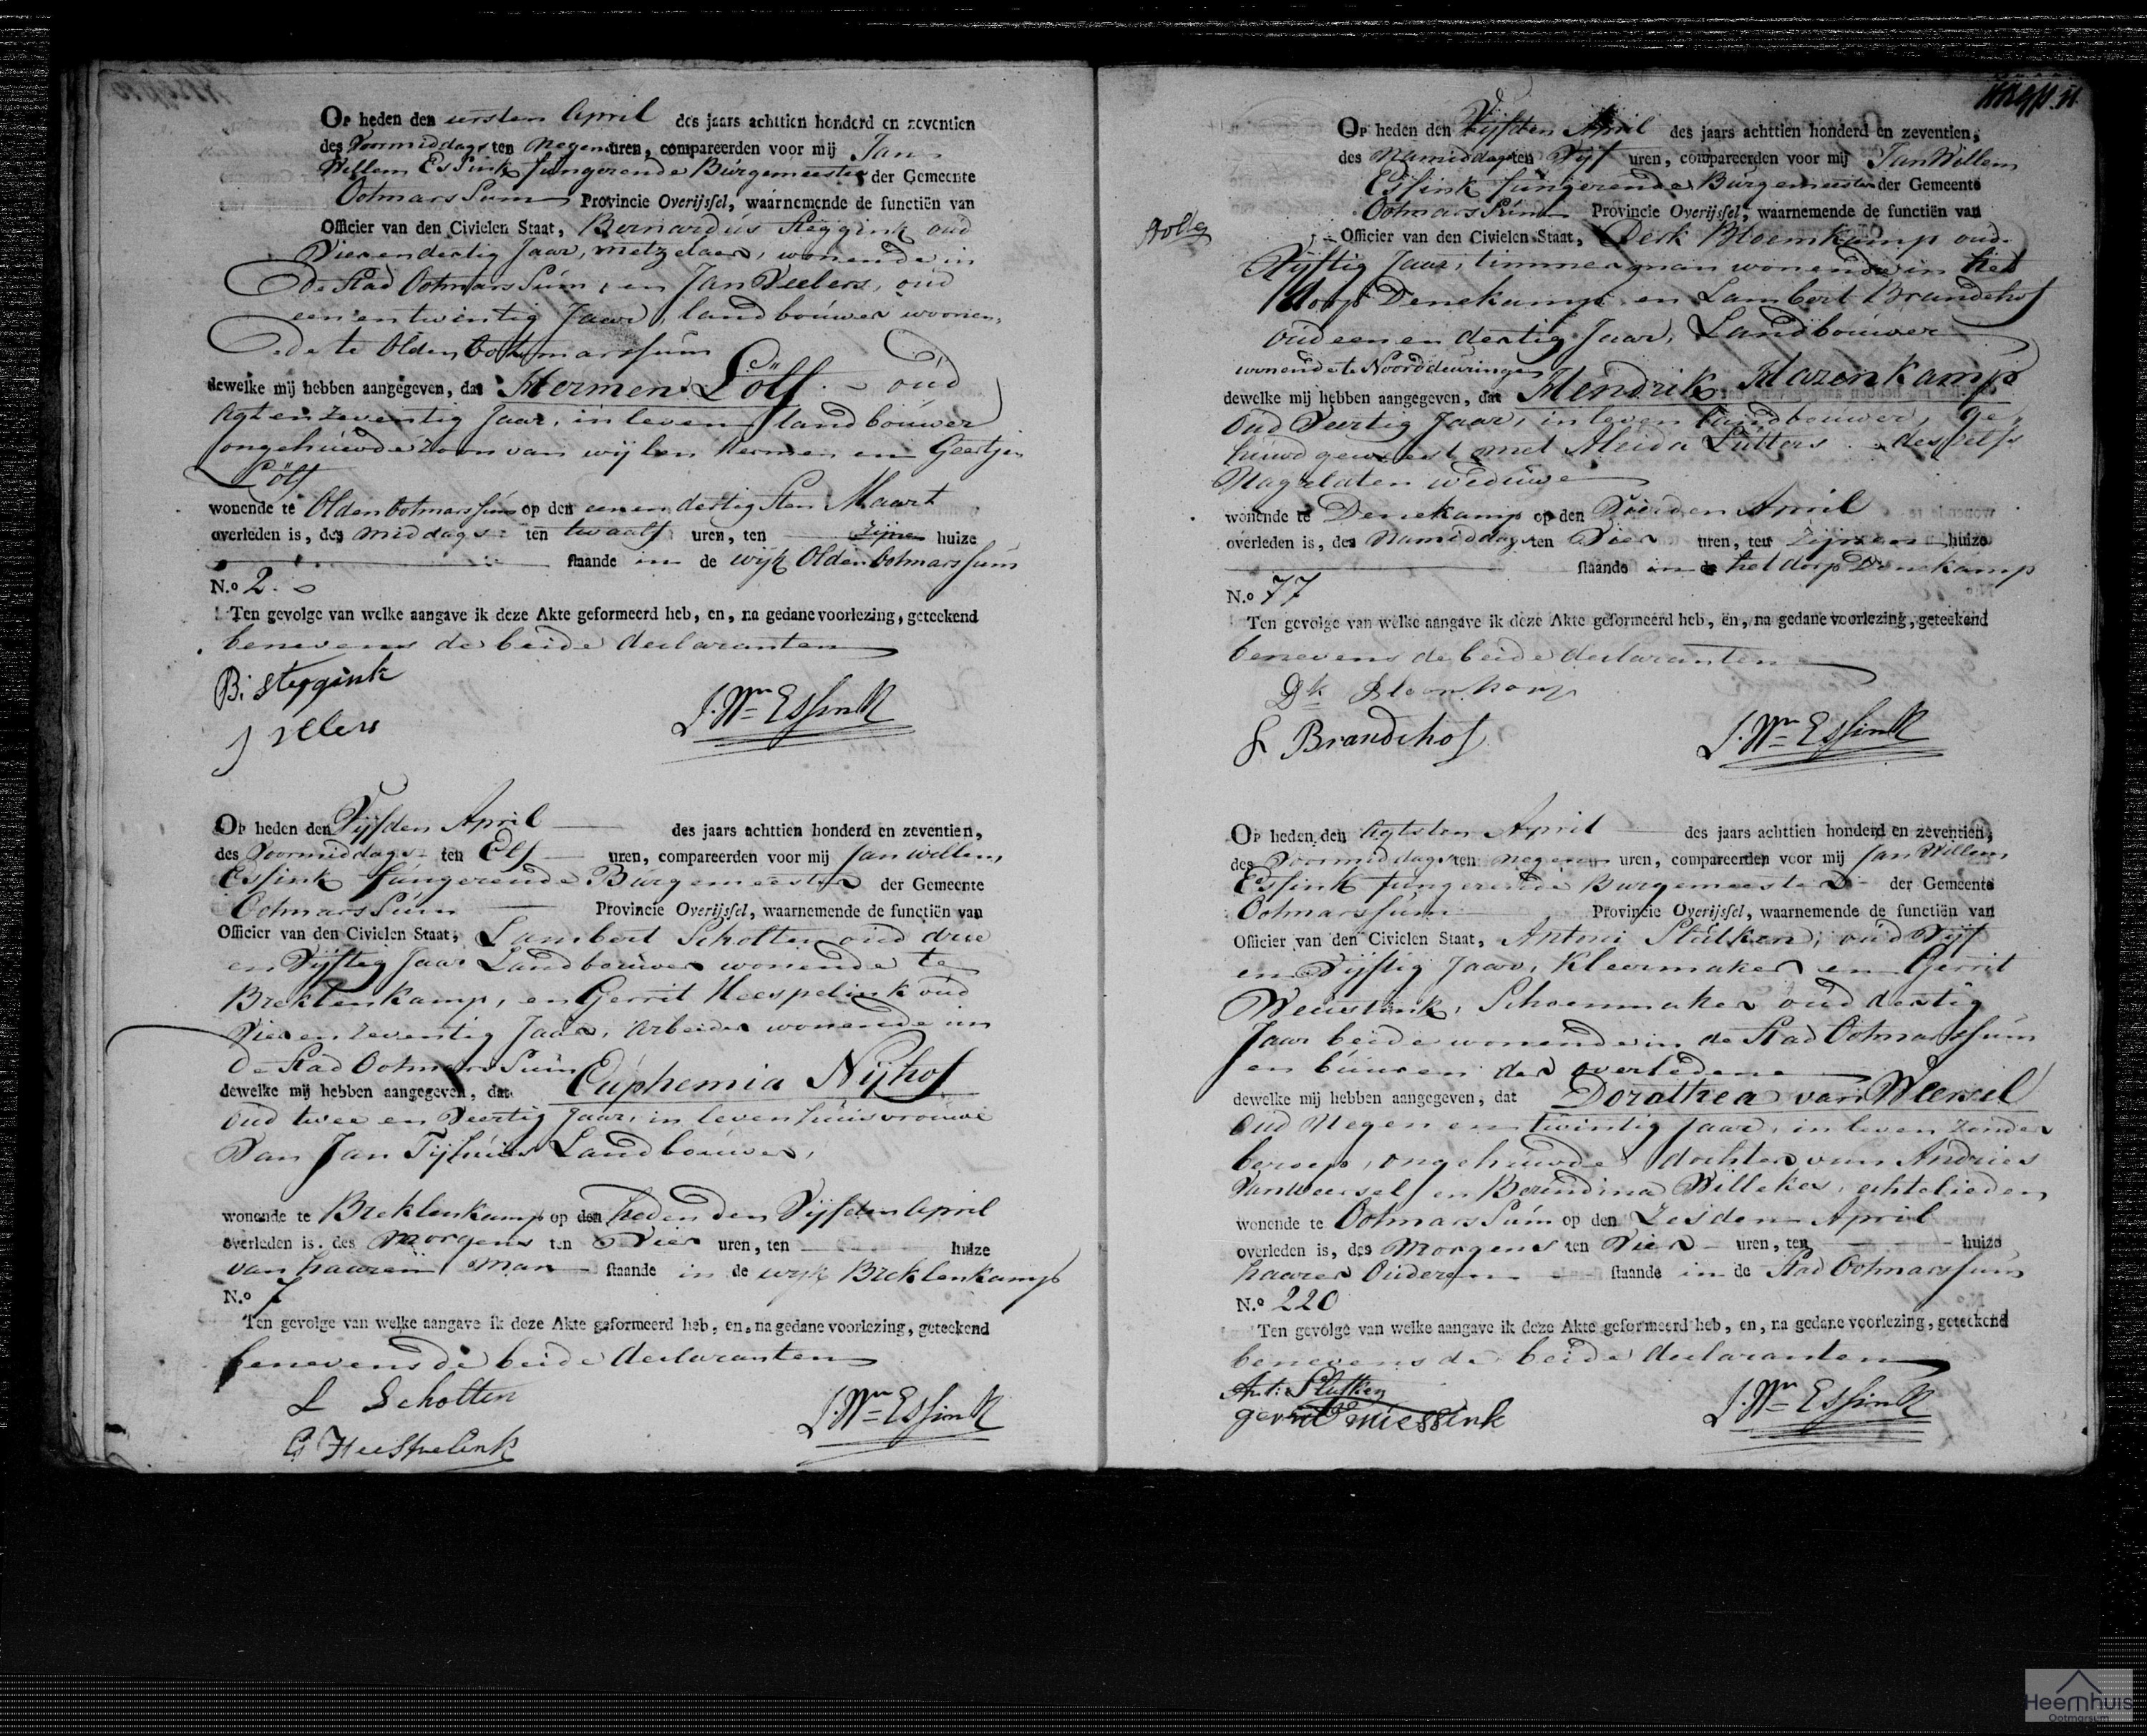 Op heden den eersten April des jaars achttien honderd en zeventien
des Voormiddags ten Negen uren, compareerden voor mij Jan
Willem Essink fungerende Burgemeester der Gemeente
Ootmarssum Provincie Overijssel, waarnemende de functiën van
Officier van den Civielen Staat, Bernardus Steggink oud
Vierendertig Jaar, metzelaer, wonende in
de Stad Ootmarssum, en Jan Veelers, oud
eenentwintig Jaar, landbouwer woonen,
de te Olden Ootmarssum
dewelke mij hebben aangegeven, dat Hermen Löll oud
Agt en zeventig Jaar, in leven landbouwer
ongehuwde zoon van wijlen Hermen en Geertjen
Löll
wonende te Olden Ootmarssum op den eenen dertigsten Maart
overleden is, des middags ten twaalf uren, ten zijne huize
staande in de wijk Olden Ootmarssum
N.o 2.
Ten gevolge van welke aangave ik deze Akte geformeerd heb, en, na gedane voorlezing, geteekend
benevens de beide declaranten
B: steggink
J. Wm Essink
Op heden den Vijfden April des jaars achttien honderd en zeventien,
des Voormiddags ten Elf uren, compareerden voor mij Jan willem
Essink fungerende Burgemeester der Gemeente
Ootmarssum Provincie Overijssel, waarnemende de functiën van
Officier van den Civielen Staat, Lambert Scholten oud drie
en Vijftig Jaar Landbouwer wonende te
Breklenkamp, en Gerrit Heespelink oud
Vier en zeventig Jaar, Arbeider wonende in
de Stad Ootmarssum
dewelke mij hebben aangegeven, dat Euphemia Nijhof
oud twee en Veertig Jaar, in leven huisvrouwe
Van Jan Tijhuis Landbouwer,
wonende te Breklenkamp op den heden den Vijfden April
overleden is, des Morgens ten Vier uren, ten huize
van haaren man staande in de wijk Breklenkamp
N.o 7
Ten gevolge van welke aangave ik deze Akte geformeerd heb, en, na gedane voorlezing, geteekend
benevens de beide declaranten
L Scholten
J. Wm Essink
G Heespelink
Op heden den Vijfden April des jaars achttien honderd en zeventien,
des Namiddags ten Vijf uren, compareerden voor mij Jan Willem
Essink fungerende Burgemeester der Gemeente
Ootmarssum Provincie Overijssel, waarnemende de functiën van
Officier van den Civielen Staat, Derk Bloemkamp oud
Vijftig Jaar, timmerman wonende in het
dorp Denekamp en Lambert Brandehof
oud eenen dertig Jaar, Landbouwer
wonende te Noorddeuringen
dewelke mij hebben aangegeven, dat Hendrik Hazenkamp
oud Veertig Jaar, in leven landbouwer, ge,
huwd geweest met Aleida Lutters deszelfs
Nagelaten weduwe
wonende te Denekamp op den Vierden April
overleden is, des Namiddags ten Vier uren, ten zijnen huize
staande in de het dorp Denekamp
N.o 77
Ten gevolge van welke aangave ik deze Akte geformeerd heb, en, na gedane voorlezing, geteekend
benevens de beide declaranten
Dk Bloemkamp
L Brandehof
J. Wm Essink
Op heden den Agtsten April des jaars achttien honderd en zeventien,
des Voormiddags ten negen uren, compareerden voor mij Jan Willem
Essink fungerende Burgemeester der Gemeente
Ootmarssum Provincie Overijssel, waarnemende de functiën van
Officier van den Civielen Staat, Antoni Stulken, oud Vijf
en Vijftig Jaar, Kleermaker en Gerrit
Weustink, Schoenmaker oud dertig
Jaar beide wonende in de Stad Ootmarssum
en buuren der overledene
dewelke mij hebben aangegeven, dat Dorathea van Weersel
Oud Negen en twintig Jaar, in leven zonder
beroep, ongehuwde dochter van Andries
van Weersel en Berendina Willekes, echtelieden
wonende te Ootmarssum op den Zesden April
overleden is, des Morgens ten Vier uren, ten huize
haarer Ouderen staande in de Stad Ootmarssum
N.o 220
Ten gevolge van welke aangave ik deze Akte geformeerd heb, en, na gedane voorlezing, geteekend
benevens de beide declaranten
Ant: Stulken
gerrit
J. Wm Essink
Heemhuis
Ootmarsum